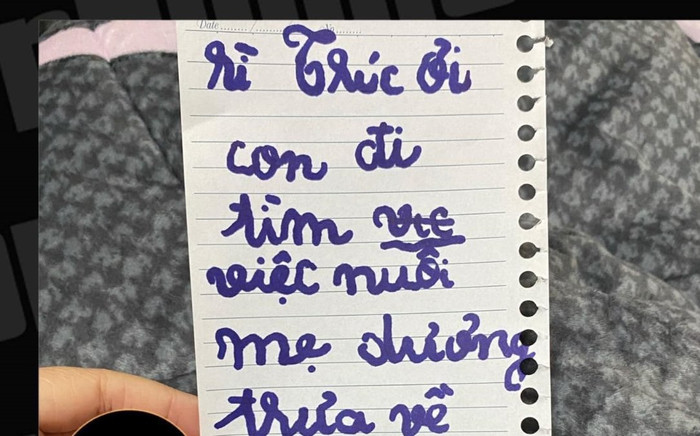 Date No
hì Thúc Ơi
con đi
tìm vic
việc nuôi
mẹ dưỡng
thưa về